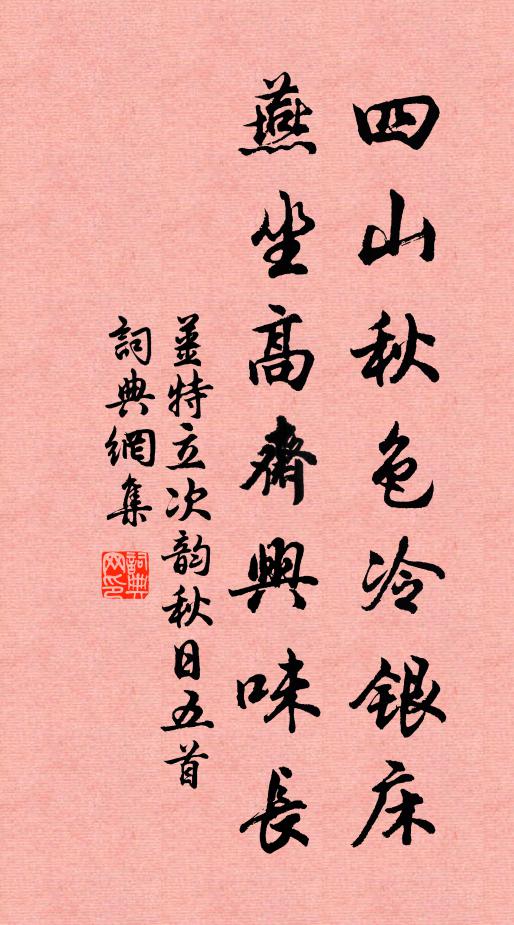 四山秋色冷銀床
燕坐高齋興味長
姜特立次韵秋日五首
詞典網集
詞典網印